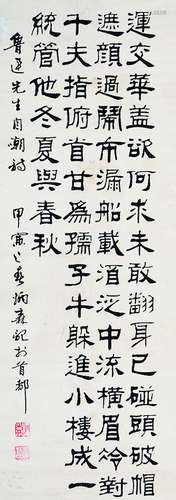 運交華蓋欲何求未敢翻身已碰頭破帽
遮顏過鬧市漏船載酒泛中流橫眉冷對
千夫指俯首甘爲孺子牛躲進小樓成一
統管他冬夏與春秋
魯迅先生自嘲詩
甲寅之春炳森記於首都